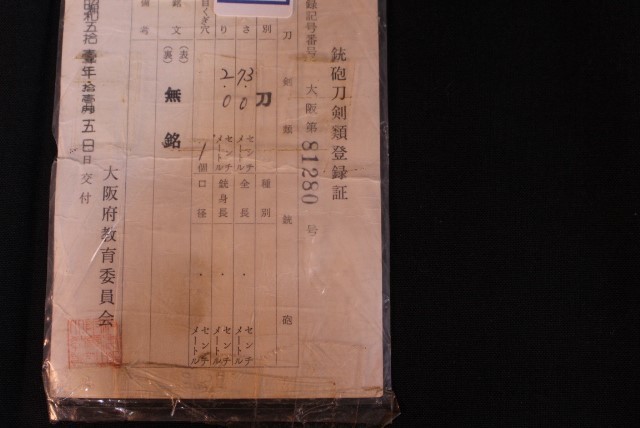 銃砲刀剣類登録証
録記号番号 大阪第81280号
刀剣類 銃砲
別 刀 種別
さ 73.0 センチメートル 全長 . センチメートル
り 2.0 センチメートル 銃身長 . センチメートル
目くぎ穴 1個 口径 . センチメートル
銘文 (表) 無銘
(裏)
備考
昭和五拾壹年 五日交付
大阪府教育委員会